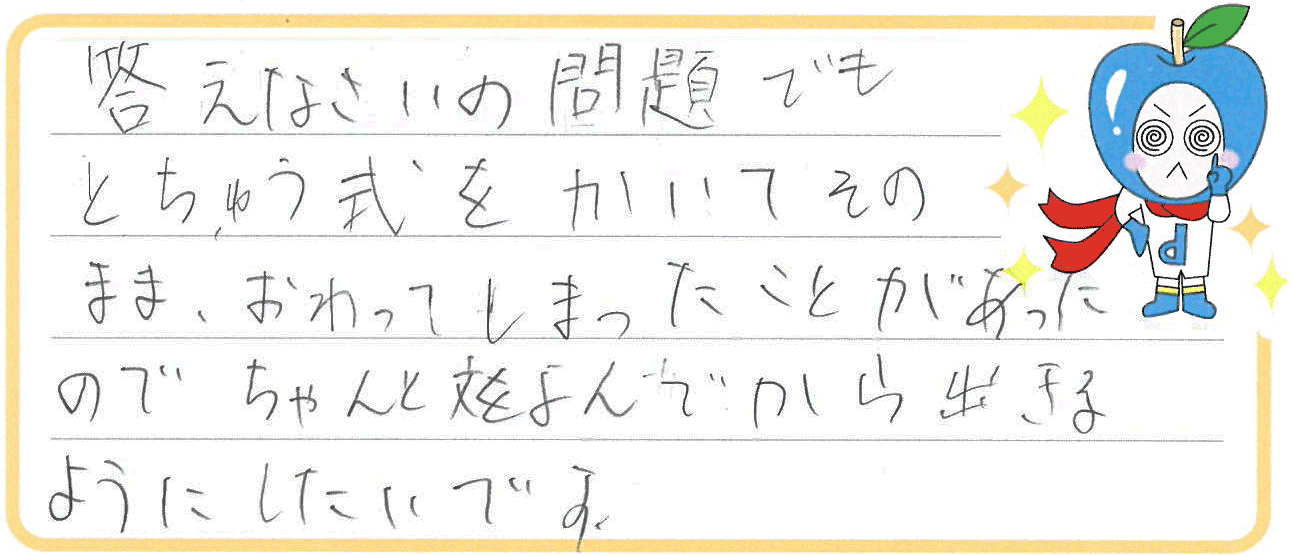 答えなさいの問題でも
とちゅう式をかいてその
まま、おわってしまったことがあった
のでちゃんと文をよんでから出きる
ようにしたいです。
d